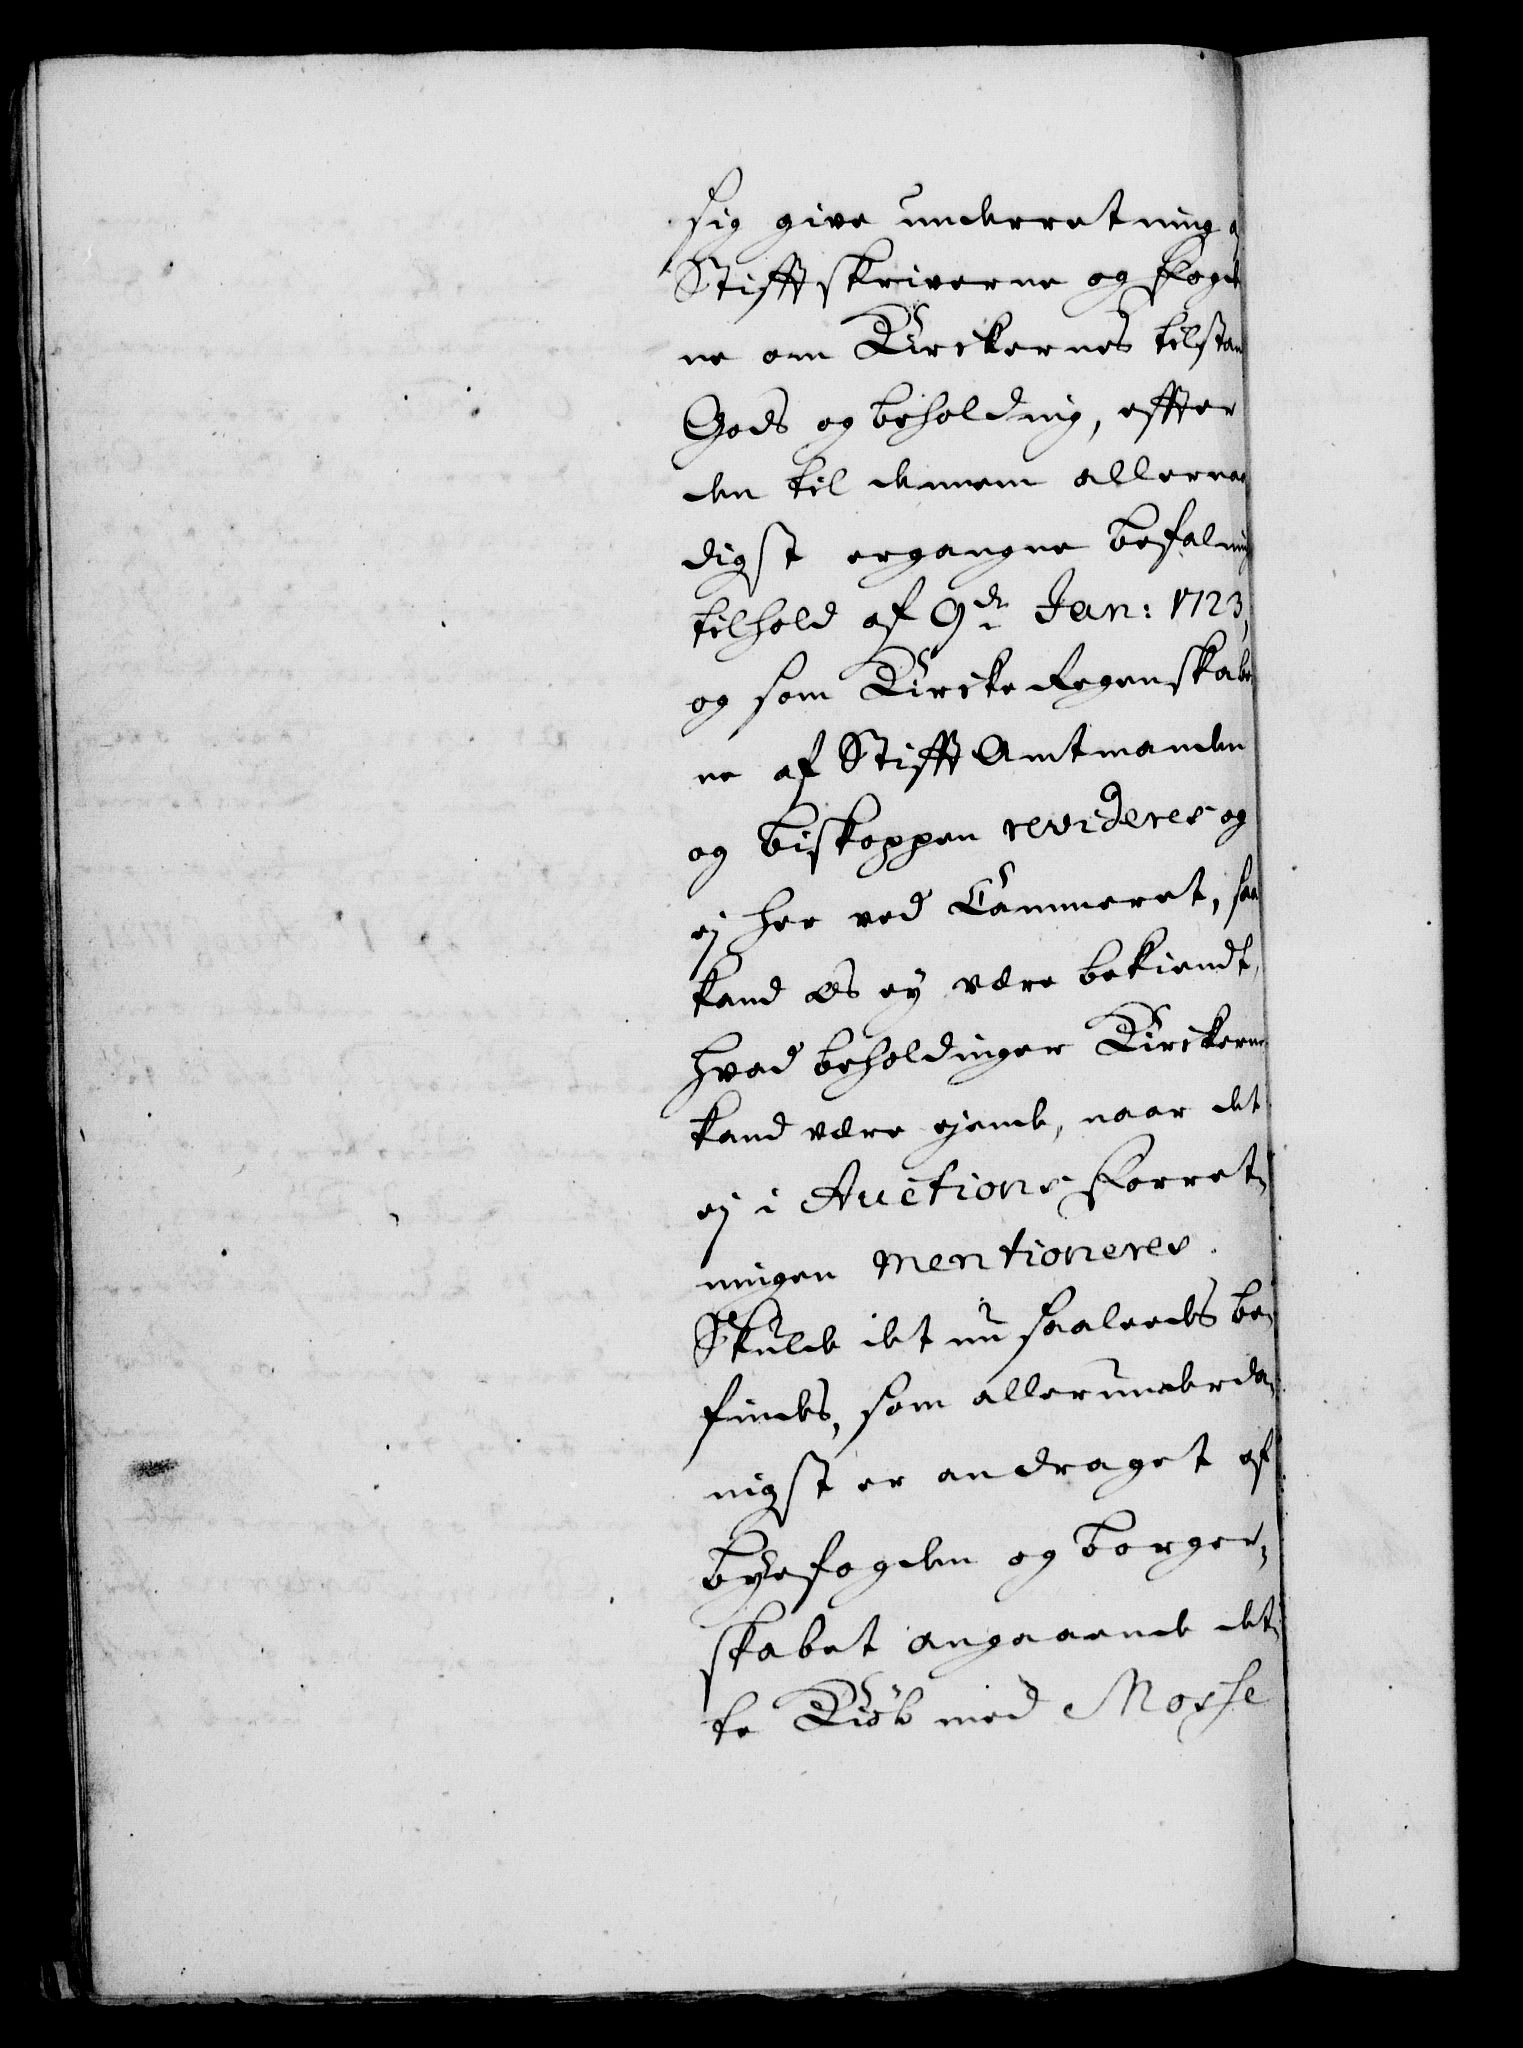 sig give underretning a
Stifftskriverne og Fogde
ne om Kirckernes tilstan
Gods og beholdning, effter
den til dennem allernaa
digst ergangne befalning
tilhold af 9de Jan: 1723,
og som Kircke Regenskabe
ne af Stifft Amtmanden
og biskoppen revideres og
ej her ved Cammeret, saa
kand os ey være bekiendt,
hvad beholdinger Kirckerne
kand være ejende, naar det
ej i Auctions Forret,
ningen mentioneres.
Skulde det nu saaleedes be,
findes, som allerunderda,
nigst er andraget af
byefogden og borger,
skabet angaaende det,
te Kiøb med Mosse